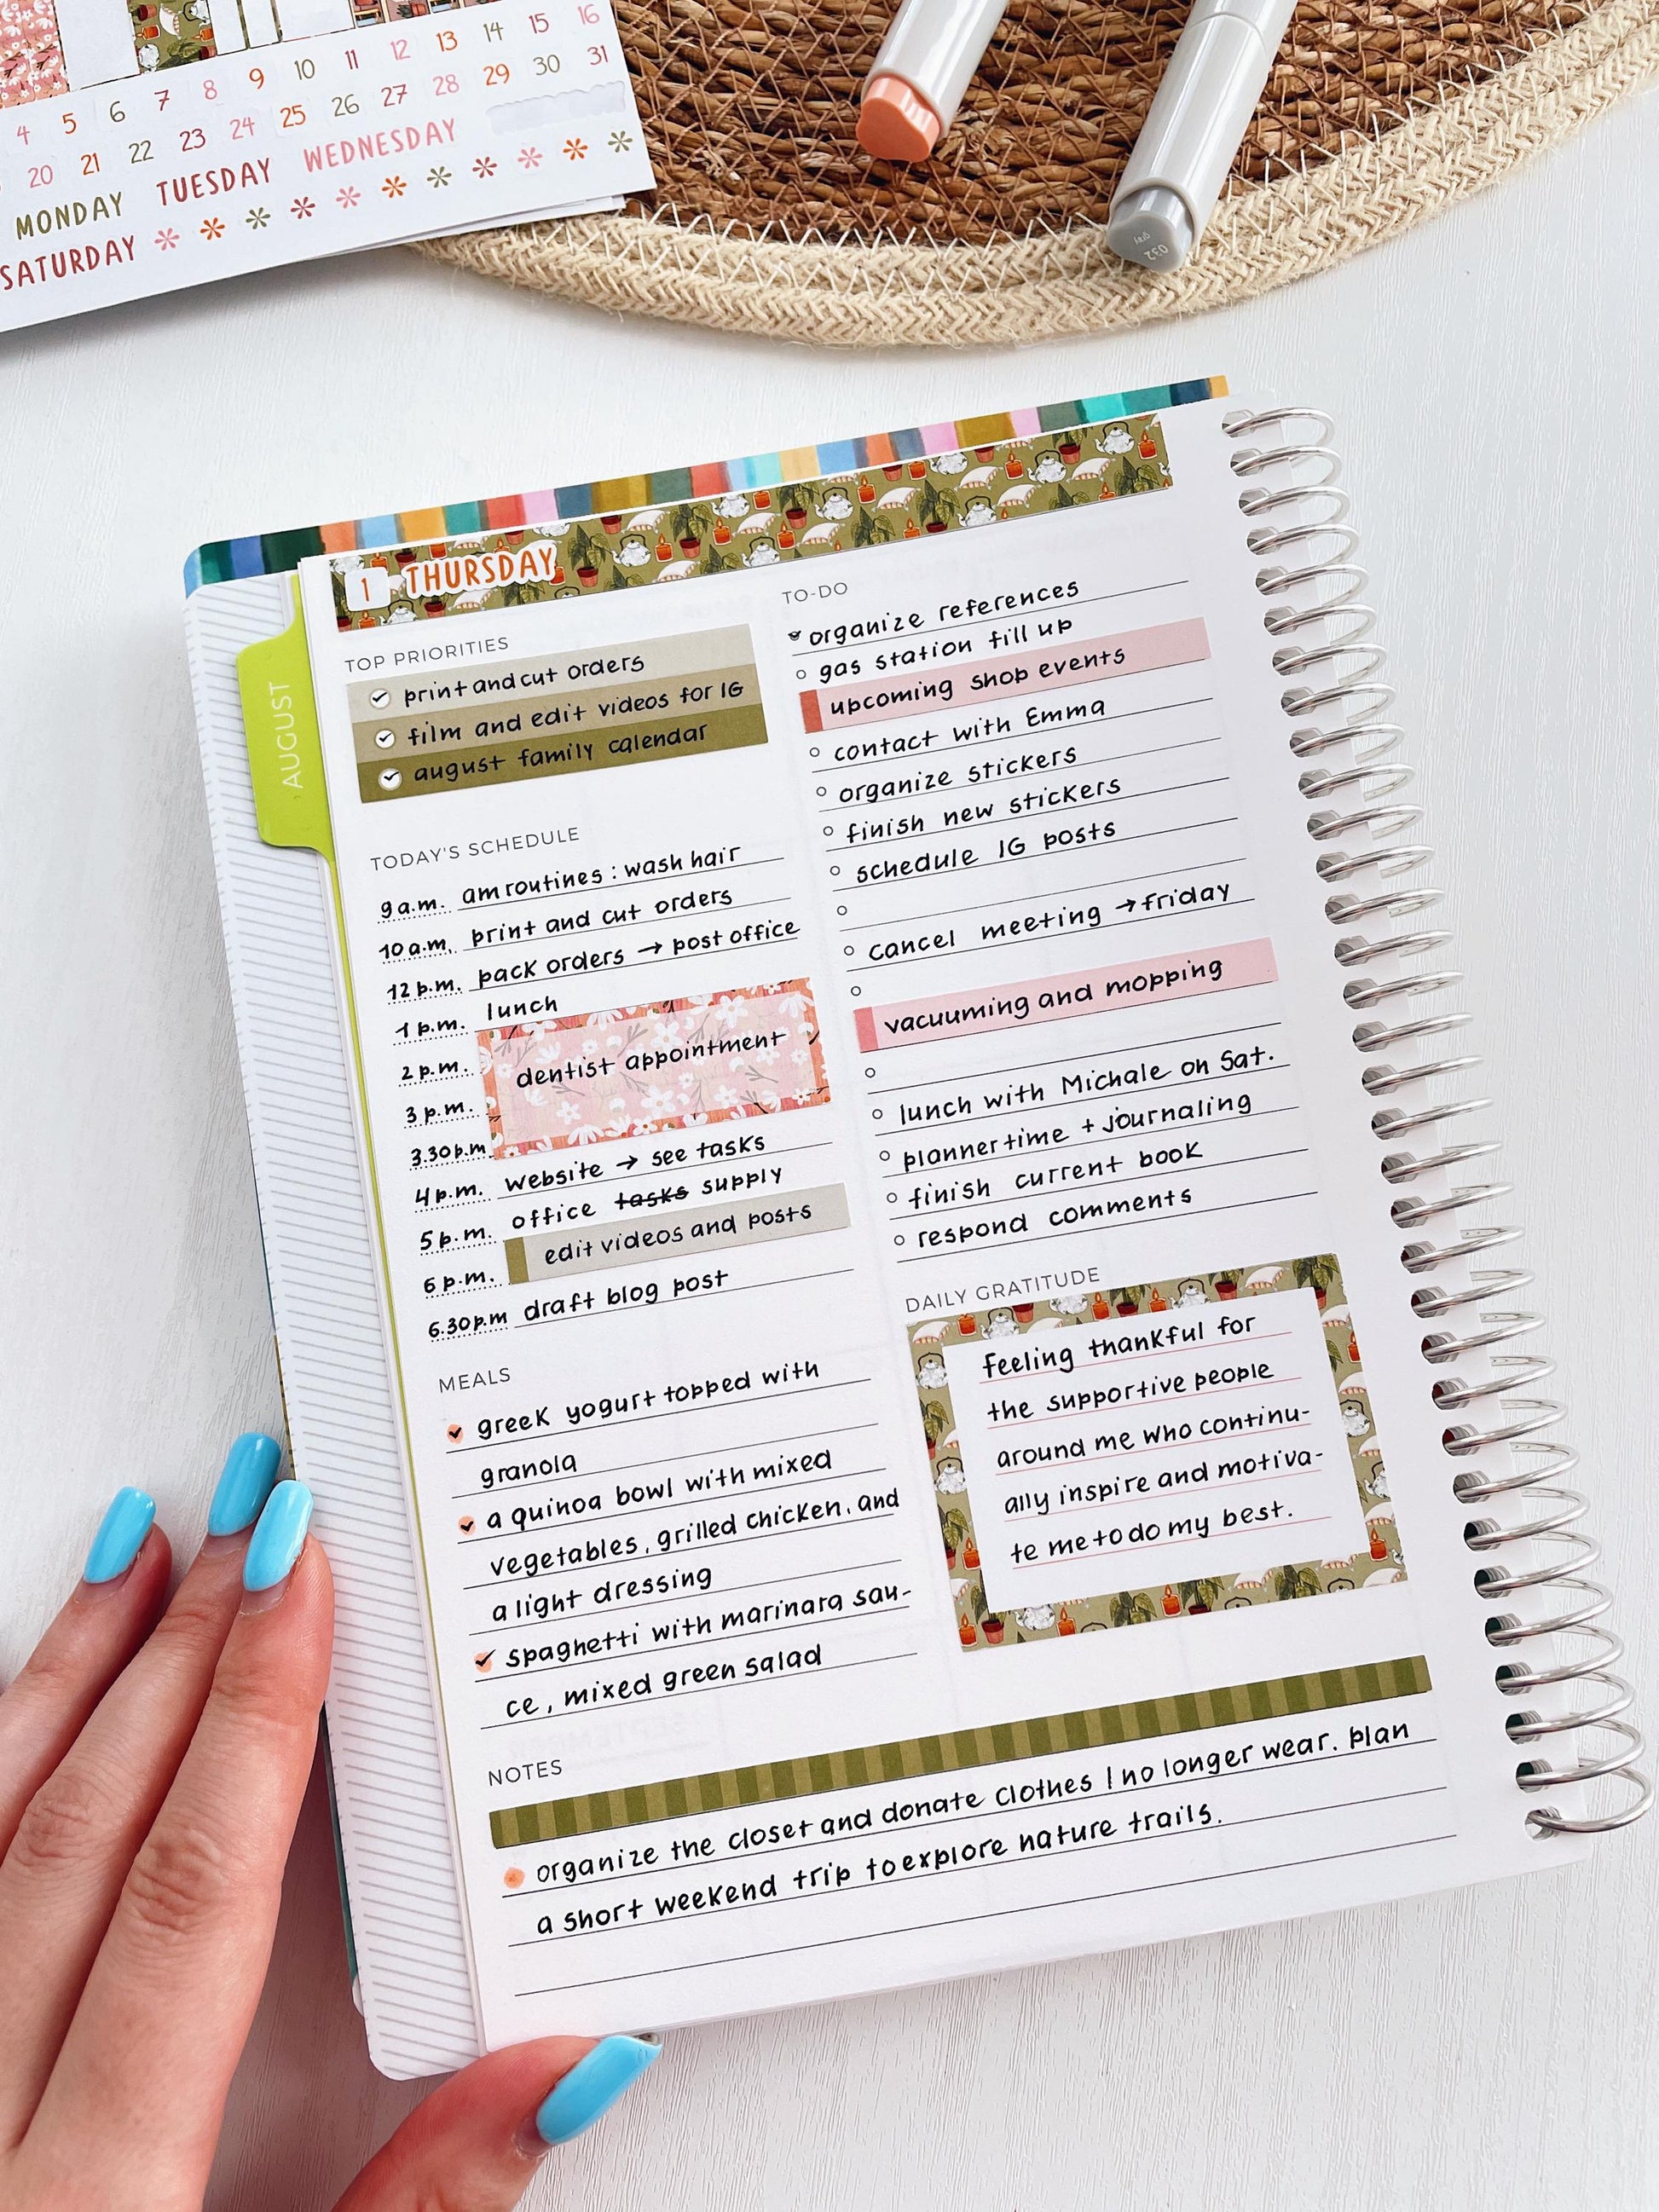 4 5 6 7 8 9 10 11 12 13 14 15 16
20 21 22 23 24 25 26 27 28 29 30 31
MONDAY TUESDAY WEDNESDAY
SATURDAY
032
AUGUST
1 THURSDAY
TOP PRIORITIES
print and cut orders
film and edit videos for IG
august family calendar
TODAY'S SCHEDULE
9 a.m. am routines : wash hair
10 a.m. print and cut orders
12 p.m. pack orders → post office
1 p.m. lunch
2 p.m. dentist appointment
3 p.m.
3.30 p.m
4 p.m. website → see tasks
5 p.m. office tasks supply
6 p.m. edit videos and posts
6.30 p.m draft blog post
MEALS
greek yogurt topped with
granola
a quinoa bowl with mixed
vegetables, grilled chicken, and
a light dressing
spaghetti with marinara sau-
ce, mixed green salad
TO-DO
organize references
gas station fill up
upcoming shop events
contact with Emma
organize stickers
finish new stickers
schedule IG posts
cancel meeting → friday
vacuuming and mopping
lunch with Michale on Sat.
planner time + journaling
finish current book
respond comments
DAILY GRATITUDE
feeling thankful for
the supportive people
around me who continu-
ally inspire and motiva-
te me to do my best.
NOTES
organize the closet and donate clothes I no longer wear. plan
a short weekend trip to explore nature trails.